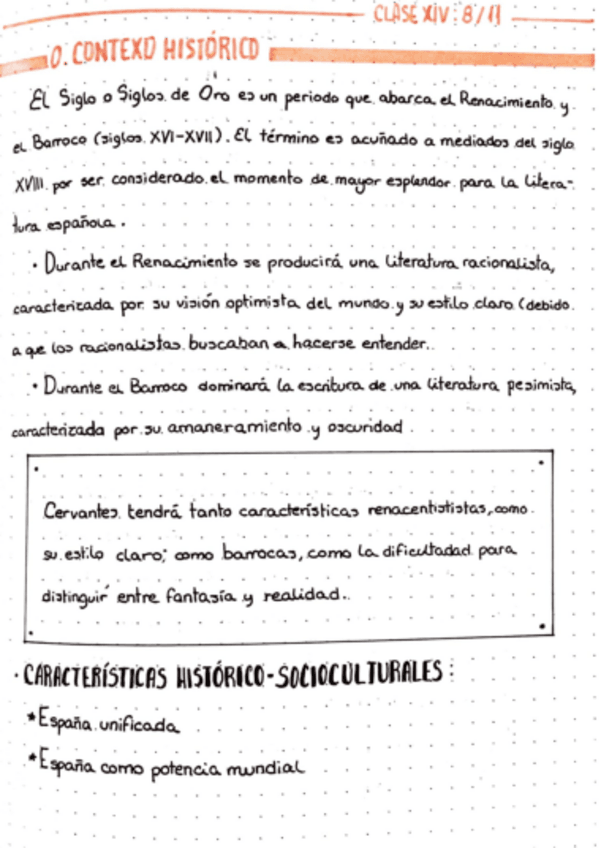 CLASE XIV: 8/11
0. CONTEXO HISTÓRICO
El Siglo o Siglos de Oro es un periodo que abarca el Renacimiento y
el Barroco (siglos XVI-XVII). El término es acuñado a mediados del siglo
XVIII por ser considerado el momento de mayor esplendor para la litera-
tura española.
· Durante el Renacimiento se producirá una literatura racionalista,
caracterizada por su visión optimista del mundo y su estilo claro (debido
a que los racionalistas buscaban a hacerse entender.
· Durante el Barroco dominará la escritura de una literatura pesimista,
caracterizada por su amaneramiento y oscuridad
Cervantes tendrá tanto características renacentististas, como
su estilo claro; como barrocas, como la dificultadad para
distinguir entre fantasía y realidad.
· CARACTERÍSTICAS HISTÓRICO-SOCIOCULTURALES:
*España unificada
*España como potencia mundial